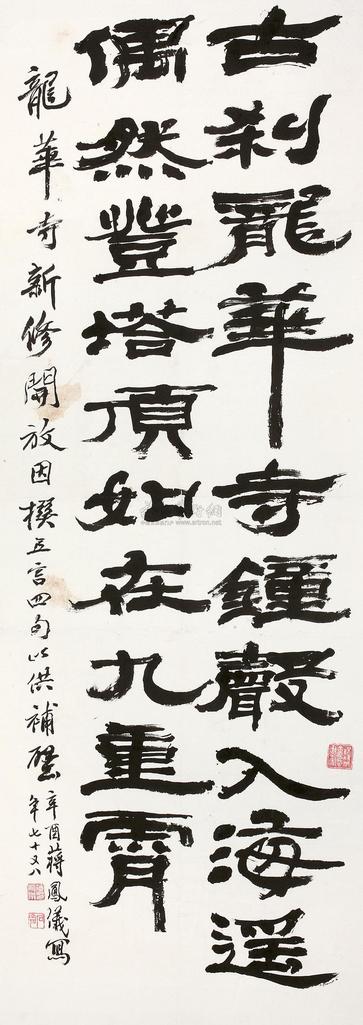 古刹龍華寺鐘聲入海遥
偶然登塔頂如在九重霄
龍華寺新修開放因撰五言四句以供補壁
辛酉蔣鳳儀寫
年七十又八
www.artron.net